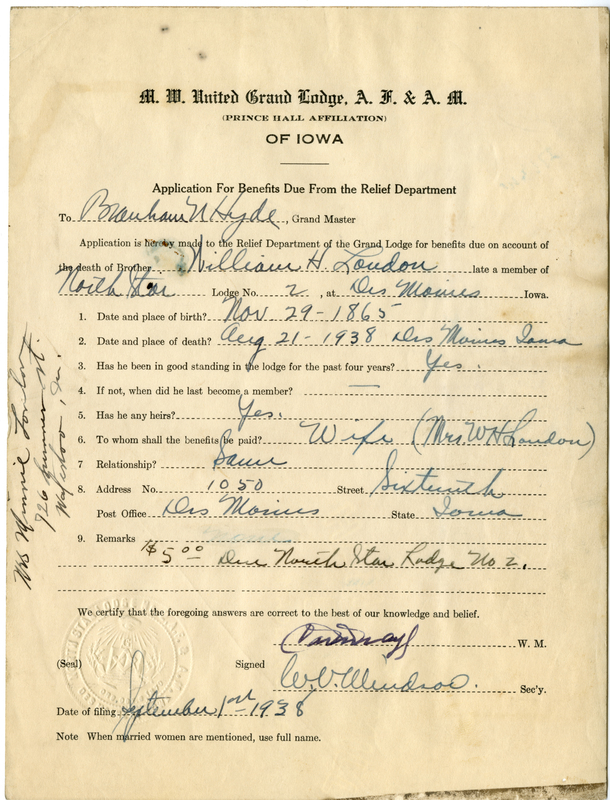 M. W. United Grand Lodge, A. F. & A. M.
(PRINCE HALL AFFILIATION)
OF IOWA
Application For Benefits Due From the Relief Department
To Branham N Hyde, Grand Master
Application is hereby made to the Relief Department of the Grand Lodge for benefits due on account of
the death of Brother William H London late a member of
North Star Lodge No. 2, at Des Moines Iowa.
1. Date and place of birth? Nov 29-1865
2. Date and place of death? Aug 21-1938 Des Moines Iowa
3. Has he been in good standing in the lodge for the past four years? Yes.
4. If not, when did he last become a member? —
5. Has he any heirs? Yes.
6. To whom shall the benefits be paid? Wife (Mrs. W H London)
7 Relationship? Same
8. Address No. 1050 Street Sixteenth
Post Office Des Moines State Iowa
9. Remarks
$5.00 Due North Star Lodge No 2.
We certify that the foregoing answers are correct to the best of our knowledge and belief.
W. M.
(Seal) Signed
W. V. Windsor. Sec'y.
Date of filing September 1st-1938
Note When married women are mentioned, use full name.
Mrs Minnie London
926 Sumner St.
Waterloo, Ia.